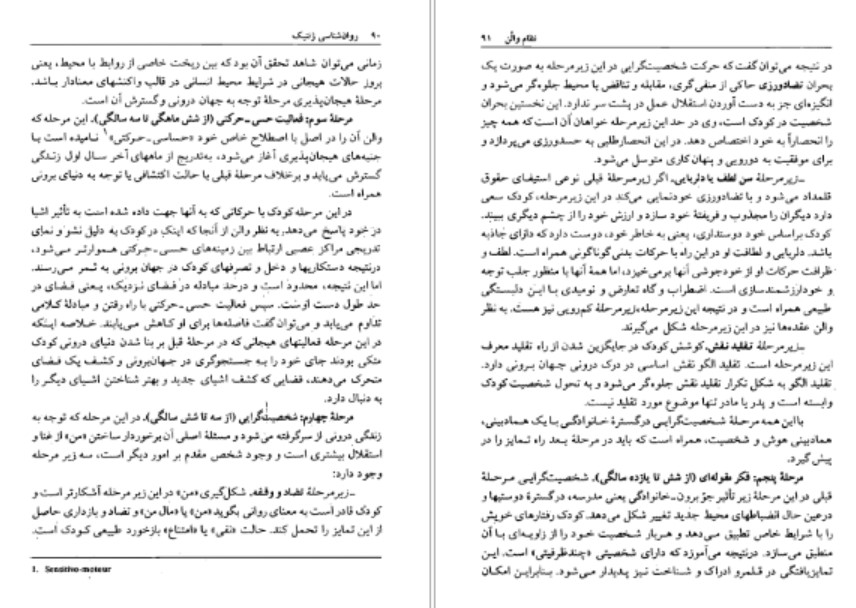 ۹۰ روان‌شناسی ژنتیک
زمانی می‌توان شاهد تحقق آن بود که بین ریخت خاصی از روابط با محیط، یعنی
بروز حالات هیجانی در شرایط محیط انسانی در قالب واکنشهای معنادار باشد.
مرحلهٔ هیجان‌پذیری مرحلهٔ توجه به جهان درونی و گسترش آن است.
مرحلهٔ سوم: فعالیت حسی-حرکتی (از شش ماهگی تا سه سالگی). این مرحله که
والن آن را در اصل با اصطلاح خاص خود «حساسی-حرکتی»۱ نامیده است با
جنبه‌های هیجان‌پذیری آغاز می‌شود، به‌تدریج از ماههای آخر سال اول زندگی
گسترش می‌یابد و برخلاف مرحلهٔ قبلی با حالت اکتشافی یا توجه به دنیای برونی
همراه است.
در این مرحله کودک با حرکاتی که به آنها جهت داده شده است به تأثیر اشیا
در خود پاسخ می‌دهد. به نظر والن از آنجا که اینک در کودک به دلیل نشو و نمای
تدریجی مراکز عصبی ارتباط بین زمینه‌های حسی-حرکتی هموارتر می‌شود،
درنتیجه دستکاریها و دخل و تصرفهای کودک در جهان برونی به ثمر می‌رسند.
اما این نتیجه، محدود است و درحد مبادله در فضای نزدیک، یعنی فضای در
حد طول دست اوست. سپس فعالیت حسی-حرکتی با راه رفتن و مبادلهٔ کلامی
تداوم می‌یابد و می‌توان گفت فاصله‌ها برای او کاهش می‌یابند. خلاصه اینکه
در این مرحله فعالیتهای هیجانی که در مرحلهٔ قبل بر بنا شدن دنیای درونی کودک
متکی بودند جای خود را به جستجوگری در جهان‌برونی و کشف یک فضای
متحرک می‌دهند، فضایی که کشف اشیای جدید و بهتر شناختن اشیای دیگر را
به دنبال دارد.
مرحلهٔ چهارم: شخصیت‌گرایی (از سه تا شش سالگی). در این مرحله که توجه به
زندگی درونی از سر گرفته می‌شود و مسئلهٔ اصلی آن برخوردار ساختن «من» از غنا و
استقلال بیشتری است و وجود شخص مقدم بر امور دیگر است، سه زیر مرحله
وجود دارد:
ـ زیرمرحلهٔ تضاد و وقفه. شکل‌گیری «من» در این زیر مرحله آشکارتر است و
کودک قادر است به معنای روانی بگوید «من» یا «مال من» و تضاد و بازداری حاصل
از این تمایز را تحمل کند. حالت «نفی» یا «امتناع» بازخورد طبیعی کودک است.
1. Sensitivo-moteur
نظام والُن ۹۱
در نتیجه می‌توان گفت که حرکت شخصیت‌گرایی در این زیرمرحله به صورت یک
بحران تضادورزی حاکی از منفی‌گری، مقابله و تناقض با محیط جلوه‌گر می‌شود و
انگیزه‌ای جز به دست آوردن استقلال عمل در پشت سر ندارد. این نخستین بحران
شخصیت در کودک است، وی در حد این زیرمرحله خواهان آن است که همه چیز
را انحصاراً به خود اختصاص دهد. در این انحصارطلبی به حسدورزی می‌پردازد و
برای موفقیت به دورویی و پنهان کاری متوسل می‌شود.
ـ زیرمرحلهٔ سن لطف یا دلربایی. اگر زیرمرحلهٔ قبلی نوعی استیفای حقوق
قلمداد می‌شود و با تضادورزی خودنمایی می‌کند در این زیرمرحله، کودک سعی
دارد دیگران را مجذوب و فریفتهٔ خود سازد و ارزش خود را از چشم دیگری ببیند.
کودک براساس خود دوستداری، یعنی به خاطر خود، دوست دارد که دارای جاذبه
باشد. دلربایی و لطافت او در این راه با حرکات بدنی گوناگونی همراه است. لطف و
ظرافت حرکات او از خودجوشی آنها برمی‌خیزد، اما همهٔ آنها با منظور جلب توجه
و خودارزشمندسازی است. اضطراب و گاه تعارض و نومیدی با این دلبستگی
طبیعی همراه است و در نتیجه این زیرمرحله، زیرمرحلهٔ کمرویی نیز هست. به نظر
والن عقده‌ها نیز در این زیرمرحله شکل می‌گیرند.
ـ زیرمرحلهٔ تقلید نقش. کوشش کودک در جایگزین شدن از راه تقلید معرف
این زیرمرحله است. تقلید الگو نقش اساسی در درک درونی جهان برونی دارد.
تقلید الگو به شکل تکرار تقلید نقش جلوه‌گر می‌شود و به تحول شخصیت کودک
وابسته است و پدر یا مادر تنها موضوع مورد تقلید نیست.
با این همه مرحلهٔ شخصیت‌گرایی درگسترهٔ خانوادگی با یک همادبینی،
همادبینی هوش و شخصیت، همراه است که باید در مرحلهٔ بعد راه تمایز را در
پیش گیرد.
مرحلهٔ پنجم: فکر مقوله‌ای (از شش تا یازده سالگی). شخصیت‌گرایی مرحلهٔ
قبلی در این مرحلهٔ زیر تأثیر جوّ برون-خانوادگی یعنی مدرسه، درگسترهٔ دوستیها و
درعین حال انضباطهای محیط جدید تغییر شکل می‌دهد. کودک رفتارهای خویش
را با شرایط خاص تطبیق می‌دهد و هربار شخصیت خود را از زاویه‌ای با آن
منطبق می‌سازد. درنتیجه می‌آموزد که دارای شخصیتی «چندظرفیتی» است. این
تمایزیافتگی در قلمرو ادراک و شناخت نیز پدیدار می‌شود. بنابراین امکان